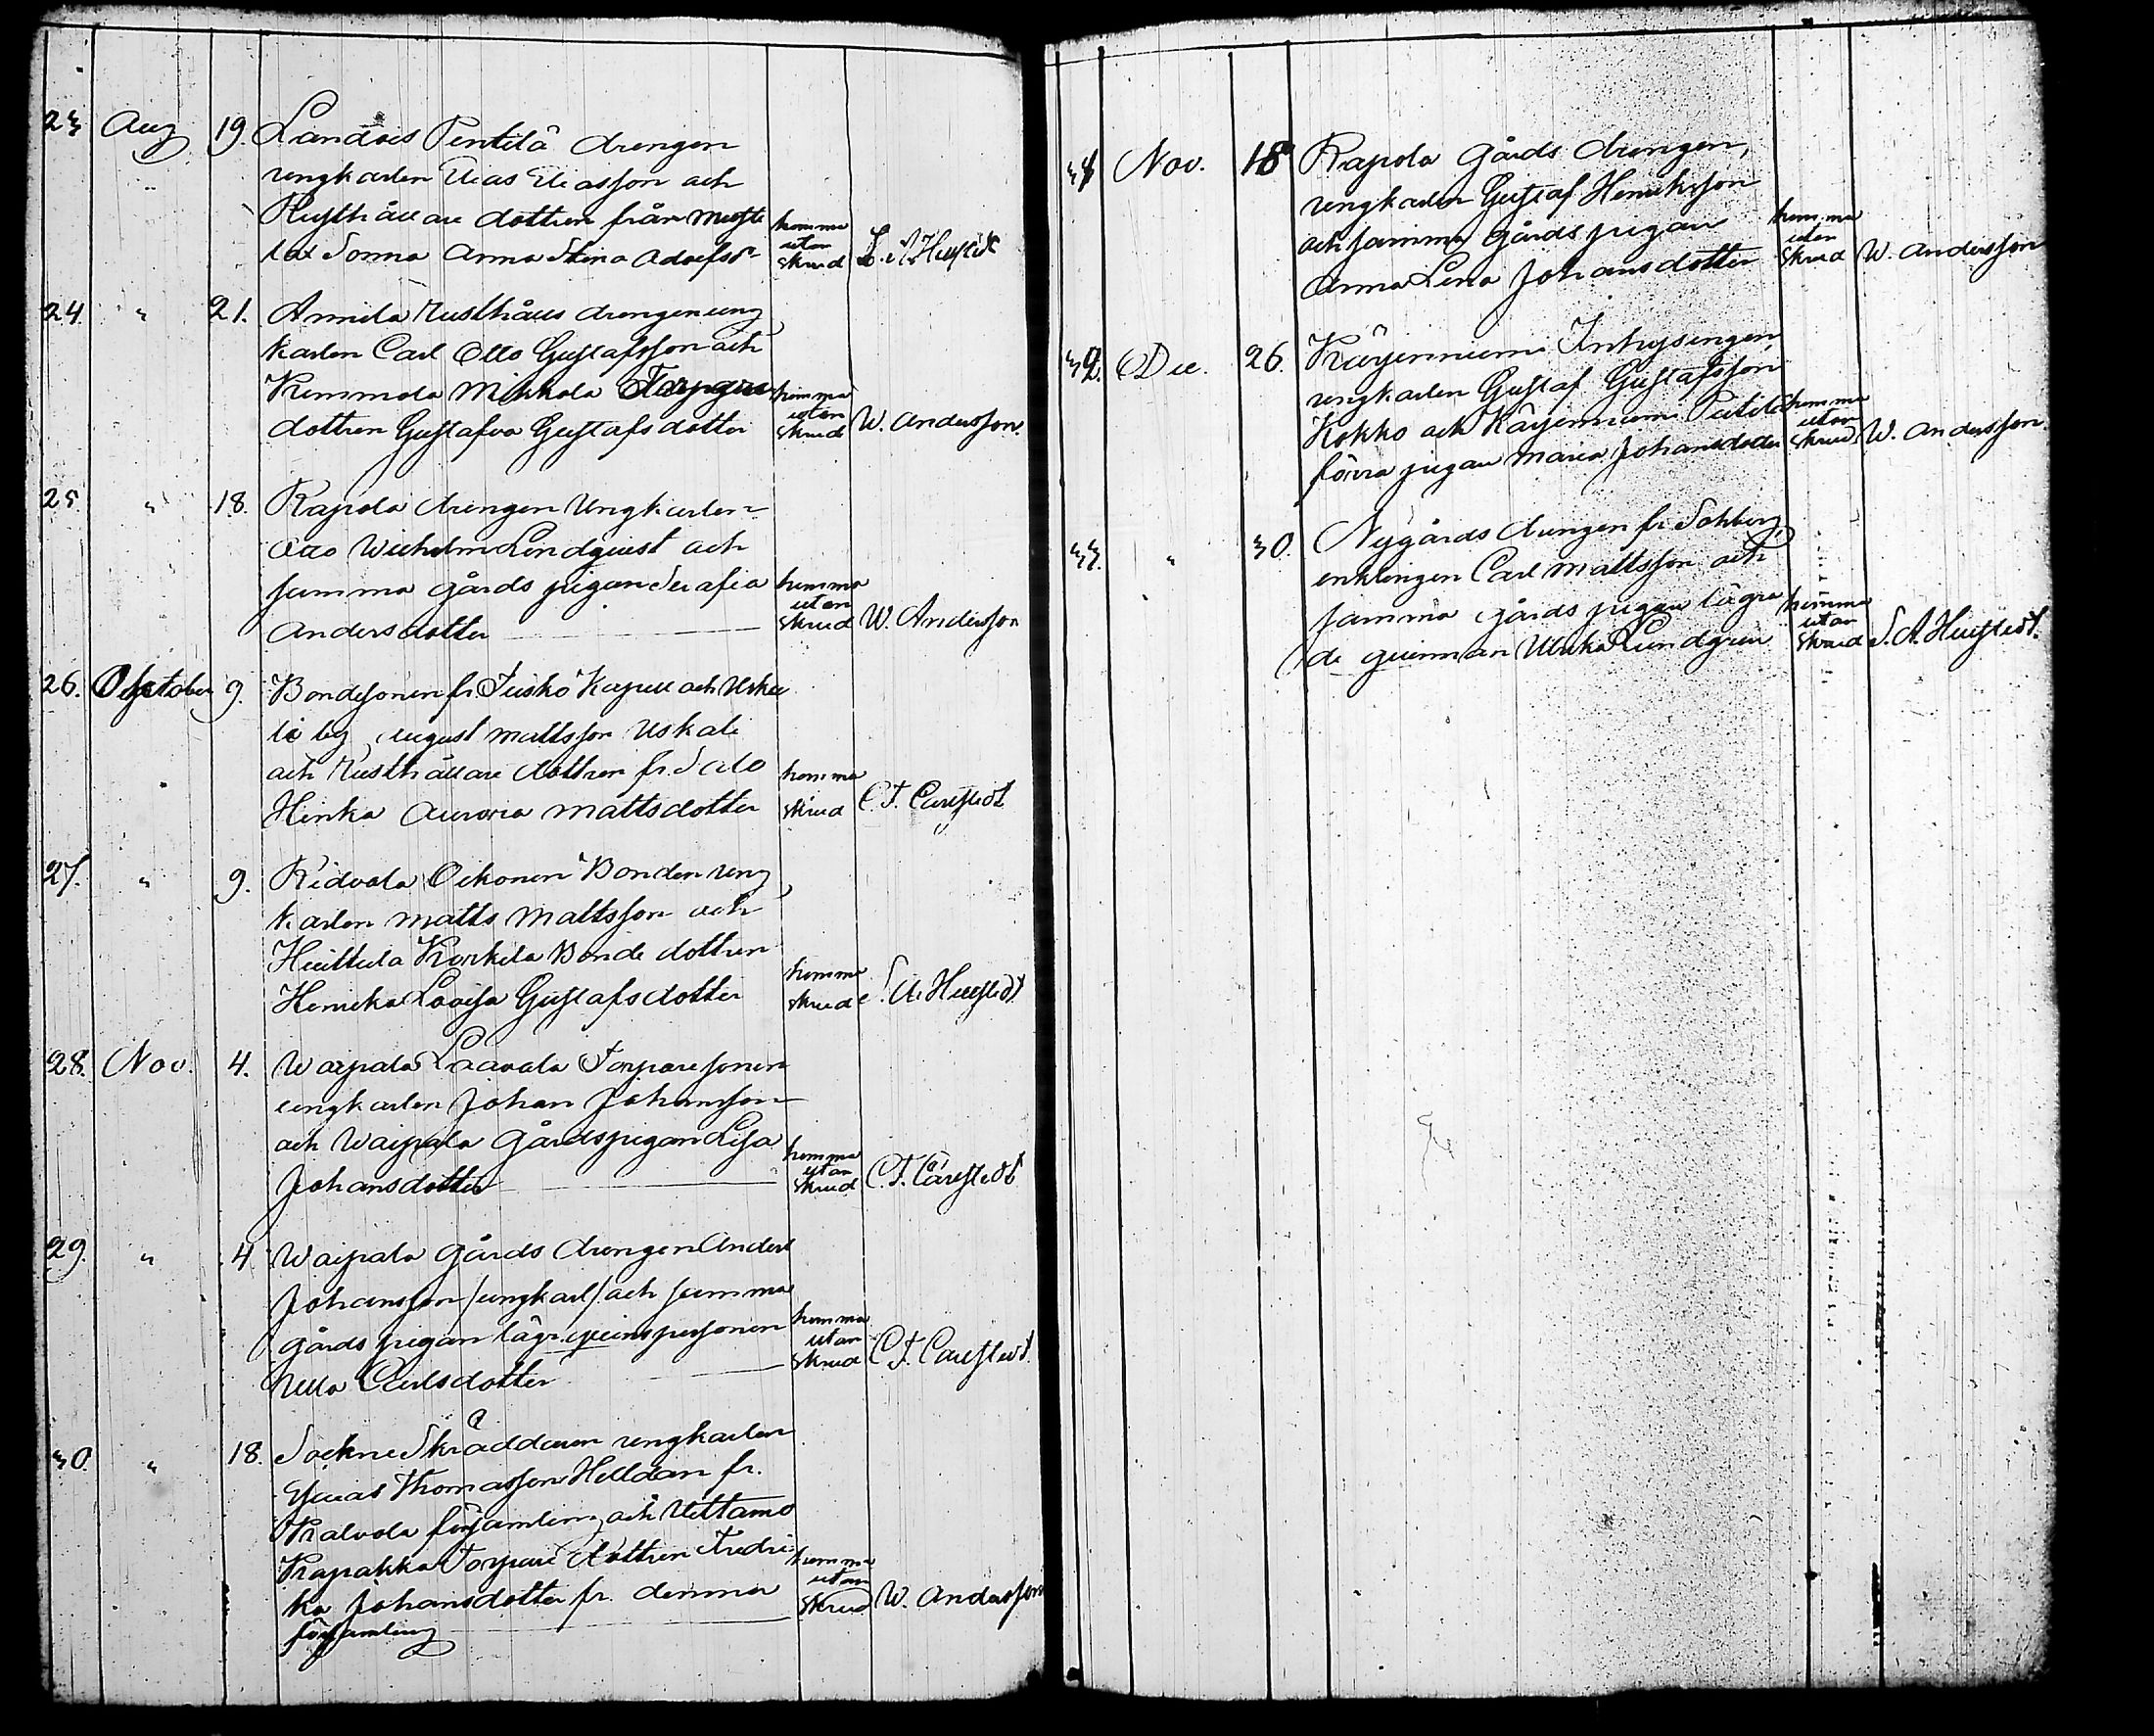 23 Aug 19. Landois Pentilä drengen
ungkarlen Elias Eliasson och
Rusthållare dottren från
Sonna Anna Stina Adolfsdr hemma utan skrud
24. " 21. Annila Rusthålls drengen ung
karlen Carl Otto Gustafsson och
Kemmola Mikkola Torpare
dottren Gustafva Gustafsdotter hemma utan skrud W. Andersson.
25 " 18. Rapola drengen Ungkarlen
Otto Wilhelm Lindquist och
samma gårds pigan Serafia
Andersdotter hemma utan skrud W. Andersson
26. October 9. Bondesonen fr. Kapell och Uska
la by, August Mattsson Uskali
och Rusthållare dottren fr. Salo
Hinka Aurora Mattsdotter hemma skrud C. F. Carlstedt
27. " 9. Ridvala Oikonen Bonden ung
karlen Matts Mattsson och
Huittula Korkela Bonde dottren
Henrika Lovisa Gustafsdotter hemma skrud
28. Nov. 4. Laavala Torpare sonen
ungkarlen Johan Johansson
och Waipala Gårdspigan Lisa
Johansdotter hemma utan skrud C. F. Carlstedt
29. " 4 Waipala Gårds drengen Anders
Johansson /ungkarl/ och samma
gårds pigan lägr. qvinspersonen
Ulla Carlsdotter hemma utan skrud C. F. Carlstedt.
30. " 18. Sockne Skräddaren ungkarlen
Thomasson Helldan fr.
Kalvola församling och Uittamo
Rapakka Torpare dottren Fredri
ka Johansdotter fr. denna
församling hemma utan skrud W. Andersson
31 Nov. 18 Rapola Gårds drengen,
ungkarlen Gustaf Henriksson
och samma Gårds pigan
Anna Lena Johansdotter hemma utan skrud W. Andersson
32. Dec. 26. Käyenniemi Inhysingen,
ungkarlen Gustaf Gustafsson
Kokko och Käyenniemi
förra pigan Maria Johansdotter hemma utan skrud W. Andersson.
33. " 30. Nygårds drengen fr. Sahberg
enklingen Carl Mattsson och
samma gårds pigan lägra
de qvinnan Ulrika Lundgren hemma utan skrud